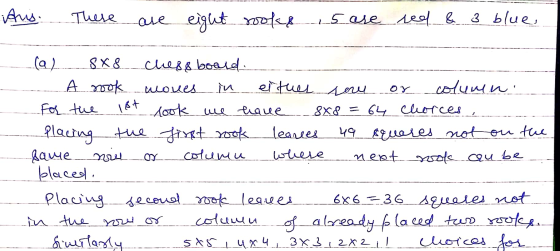 Ans. There are eight rooks, 5 are red & 3 blue.
(a) 8x8 chessboard.
A rook moves in either row or column.
For the 1st rook we have 8x8 = 64 choices.
Placing the first rook leaves 49 squares not on the
same row or column where next rook can be
placed.
Placing second rook leaves 6x6 = 36 squares not
in the row or column of already placed two rooks.
Similarly 5x5, 4x4, 3x3, 2x2, 1 choices for